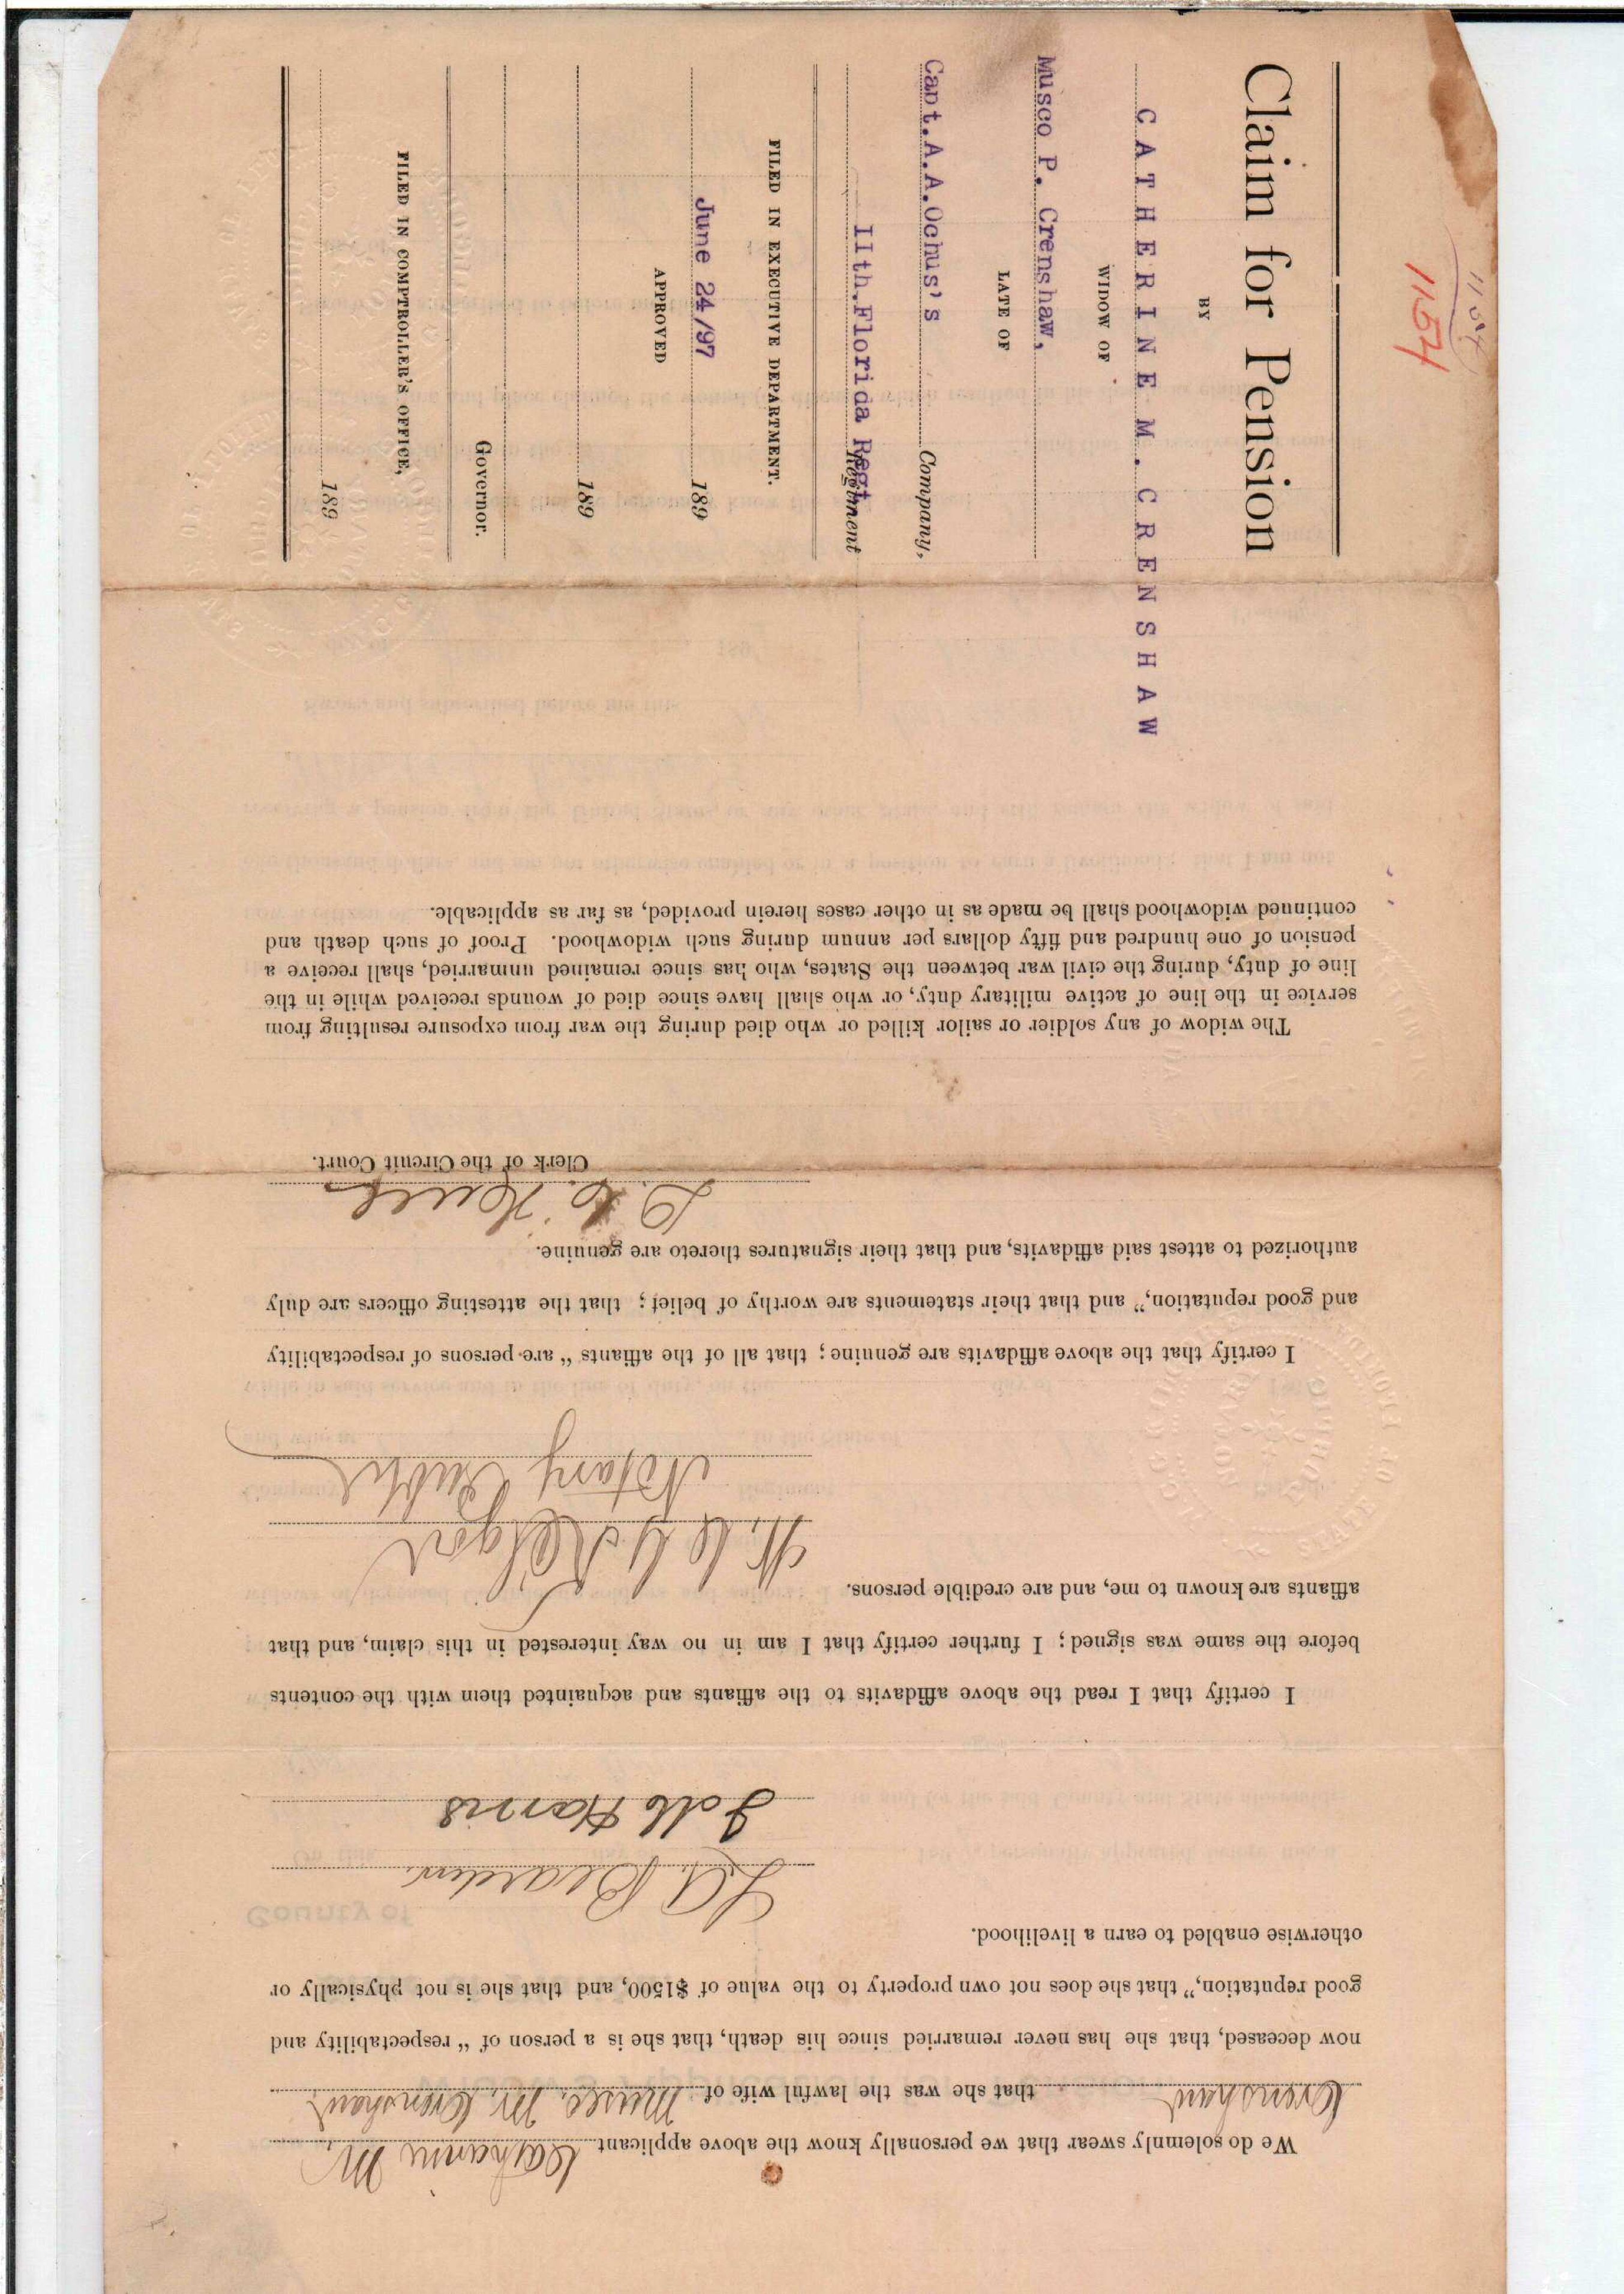 1154
1154
Claim for Pension
BY
CATHERINE M. CRENSHAW
WIDOW OF
Musco P. Crenshaw,
LATE OF
Capt.A.A.Ochus's Company,
11th.Florida Regt. Regiment
FILED IN EXECUTIVE DEPARTMENT.
June 24/97 189
APPROVED
189
Governor.
FILED IN COMPTROLLER'S OFFICE,
189
We do solemnly swear that we personally know the above applicant Catharine M.
Crenshaw that she was the lawful wife of Musco. M. Crenshaw
now deceased, that she has never remarried since his death, that she is a person of “ respectability and
good reputation,” that she does not own property to the value of $1500, and that she is not physically or
otherwise enabled to earn a livelihood.
L A Bearden.
Harris
I certify that I read the above affidavits to the affiants and acquainted them with the contents
before the same was signed ; I further certify that I am in no way interested in this claim, and that
affiants are known to me, and are credible persons.
Notary Public
I certify that the above affidavits are genuine ; that all of the affiants “ are persons of respectability
and good reputation,” and that their statements are worthy of belief ; that the attesting officers are duly
authorized to attest said affidavits, and that their signatures thereto are genuine.
Clerk of the Circuit Court.
The widow of any soldier or sailor killed or who died during the war from exposure resulting from
service in the line of active military duty, or who shall have since died of wounds received while in the
line of duty, during the civil war between the States, who has since remained unmarried, shall receive a
pension of one hundred and fifty dollars per annum during such widowhood. Proof of such death and
continued widowhood shall be made as in other cases herein provided, as far as applicable.